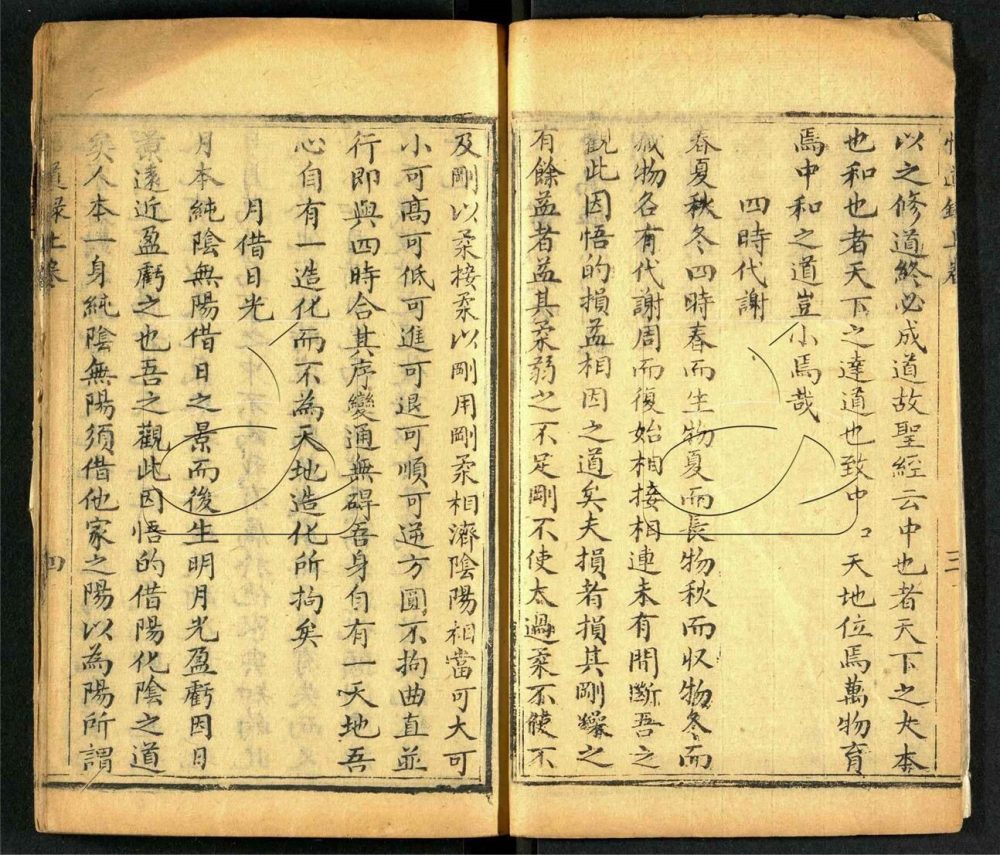 悟道錄上卷
三
以之修道終必成道故聖經云中也者天下之大本
也和也者天下之達道也致中口天地位焉萬物育
焉中和之道豈小焉哉
四時代謝
春夏秋冬四時春而生物夏而長物秋而収物冬而
藏物各有代謝周而復始相接相連未有間斷吾之
觀此因悟的損益相因之道矣夫損者損其剛燥之
有餘益者益其柔弱之不足剛不使太過柔不使不
及剛以柔接柔以剛用剛柔相濟陰陽相當可大可
小可高可低可進可退可順可逆方圓不拘曲直並
行即與四時合其序變通無碍吾身自有一天地吾
心自有一造化而不為天地造化所拘矣
月借日光
月本純陰無陽借日之景而後生明月光盈虧因日
黃遠近盈虧之也吾之觀此因悟的借陽化陰之道
矣人本一身純陰無陽須借他家之陽以為陽所謂
道錄上卷
四